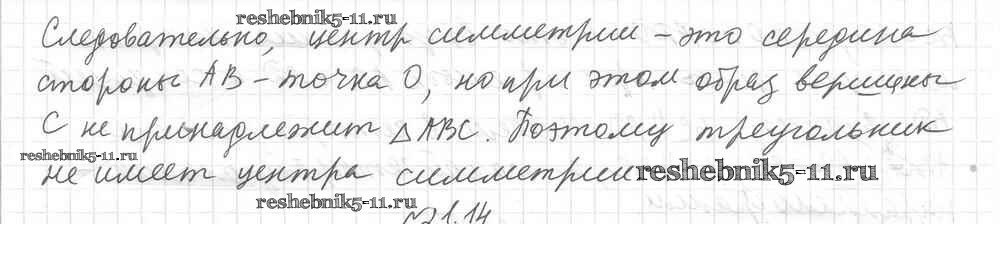 reshebnik5-11.ru
Следовательно, центр симметрии – это середина
стороны AB – точка O, но при этом образ вершины
C не принадлежит △ABC. Поэтому треугольник
reshebnik5-11.ru
не имеет центра симметрии
reshebnik5-11.ru
reshebnik5-11.ru